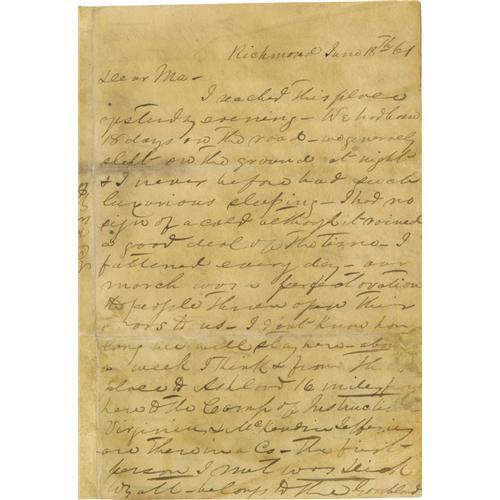 Richmond June 18th 61
Dear Ma -
I reached this place
yesterday evening - We had been
18 days on the road - we generally
slept on the ground at night -
& I never before had such
luxurious sleeping - I had no
sign of a cold although it rained
a good deal of the time - I
fattened every day - our
march was a perfect ovation
people threw open their
doors to us - I don't know how
long we will stay here - about
a week I think & from this
place to Ashland 16 miles from
here to the Camp of Instruction
Virginius & McLendon Jeffries
are there in a Co - The first
person I met was Dick
Wyatt - belongs to the